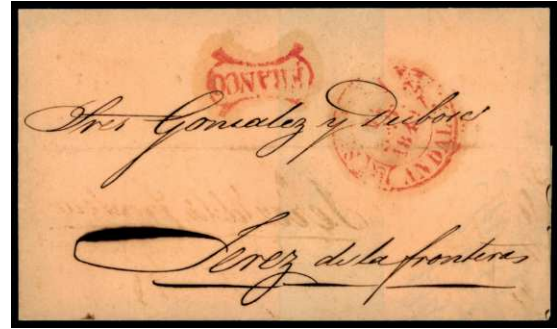 FRANCO
Sres Gonzalez y Dubosc
Jerez de la frontera